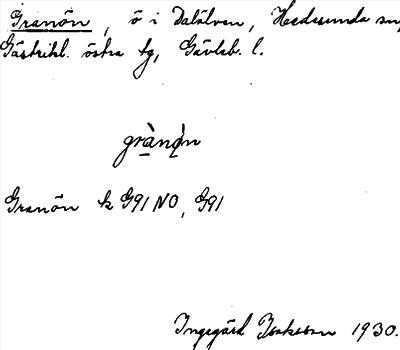 Granön, ö i Dalälven, Hedesunda sn,
Gästrikl. östra tg, Gävleb. l.
grànö̀n
Granön k G91 NO, G91
Ingegärd Isaksson 1930.